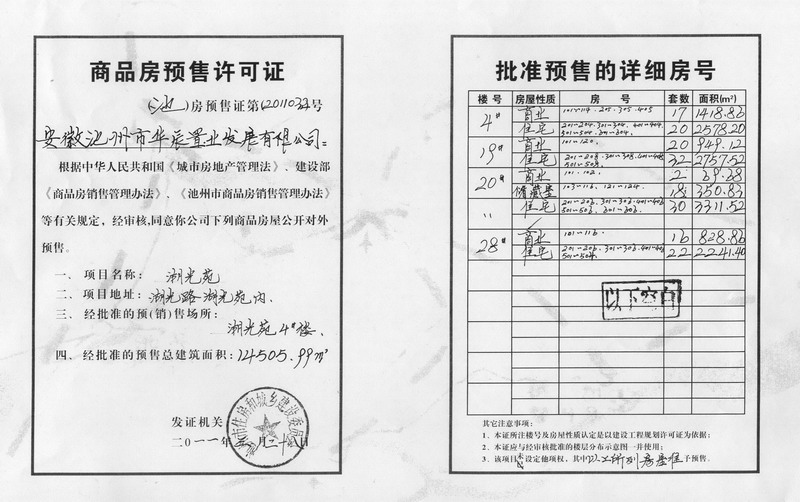 商品房预售许可证
(池)房预售证第(2011033号
安徽池州市华辰置业发展有限公司:
根据中华人民共和国《城市房地产管理法》、建设部
《商品房销售管理办法》、《池州市商品房销售管理办法》
等有关规定，经审核,同意你公司下列商品房屋公开对外
预售。
一、 项目名称： 湖光苑
二、 项目地址： 湖光路湖光苑内、
三、 经批准的预(销)售场所：
湖光苑4#楼、
四、 经批准的预售总建筑面积：14505.99m²
发证机关
市住房和城乡建设委员
二〇一一年 月二十 日
批准预售的详细房号
楼号 房屋性质 房 号 套数 面积(m²)
4# 商业 101~114.205.305.405 17 1418.86
住宅 201~204.301~304.401~404. 20 2578.20
501~504.601~604.
19# 商业 101~120. 20 949.12
住宅 201~208.301~308.401~408 32 2757.52
501~508.
20# 商业 101.102. 2
储藏室 103~116.121~124. 18 350.83
〃 住宅 201~206.301~306.401~406 30 3311.52
501~506.601~606.
28# 商业 101~116. 16 828.86
住宅 201~206.301~306.401~406 22 2241.40
501~504.
以下空白
其它注意事项：
1、本证所注楼号及房屋性质认定是以建设工程规划许可证为依据；
2、本证应与经审核批准的楼层分布示意图一并使用；
3、该项目未设定他项权，其中以上所列房屋准予预售。